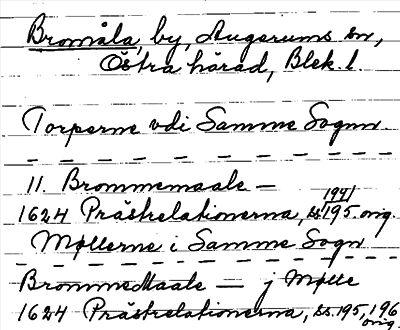 Bromåla, by, Augerums sn,
Östra härad, Blek. l.
Torperne vdi Samme Sognn.
11. Brommemaale —
1941
1624 Prästrelationerna, s. 195. orig.
Møllerne i Samme Sogn
BrommeMaale — j Mølle
1624 Prästrelationerna, s. 195, 196
orig.